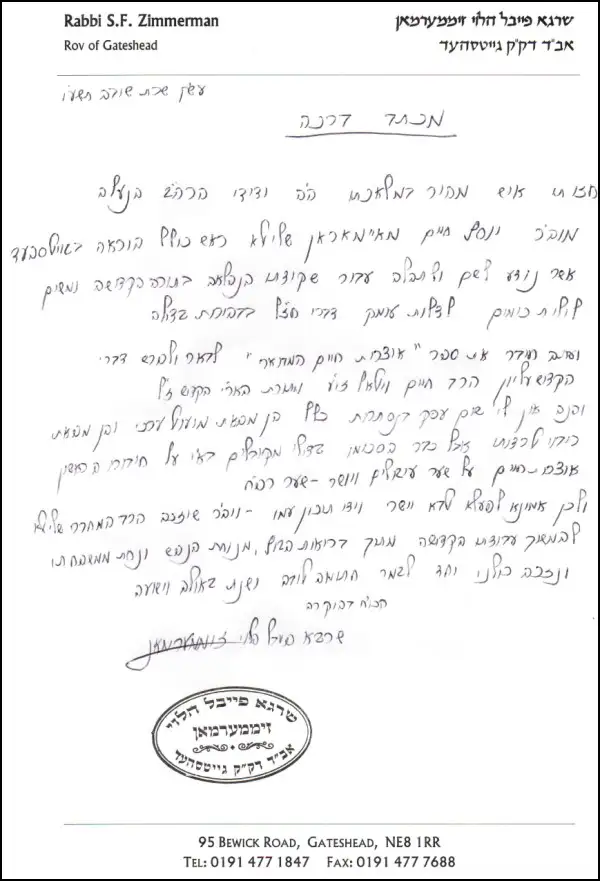 Rabbi S.F. Zimmerman
Rov of Gateshead
שרגא פייבל הלוי זיממערמאן
אב״ד דק״ק גייטסהעד
עש״ק שבת שובה תשע״ו
מכתב ברכה
חזותי איש מהיר במלאכתו ה״ה ידידי הרה״ג הנעלה
מוהר״ר יוסף חיים שליט״א ראש כולל הוראה בגייטסהעד
אשר נודע לשם ולתהלה עבור שקידתו הנפלאה בתורה הקדושה ומשים
לילות כימים לדלות עומק דברי חז״ל בבהירות גדולה
וכתב וחיבר את ספר "אוצרות חיים המבואר" לבאר ולפרש דברי
הקדוש עליון הרב חיים וויטאל זי״ע ותורת האר״י הקדוש ז״ל
והנה אין לי שום עסק בנסתרות כלל הן מפאת מיעוט ערכי והן מפאת
אבל כבר הסכימו גדולי מקובלים על חיבורו הראשון
אוצרות חיים על שער עיגולים ויושר - שער רפ״ח
ולכן אמינא לפעלא טבא יישר ויהי ה׳ עמו - ויה״ר שיזכה הרב המחבר שליט״א
להמשיך עבודתו הקדושה מתוך בריאות הגוף, מנוחת הנפש ונחת ממשפחתו
ונזכה כולנו יחד לגמר חתימה טובה ושנת גאולה וישועה
הכו״ח בהוקרה
שרגא פייבל הלוי זיממערמאן
שרגא פייבל הלוי
זיממערמאן
אב״ד דק״ק גייטסהעד
95 Bewick Road, Gateshead, NE8 1RR
Tel: 0191 477 1847 Fax: 0191 477 7688